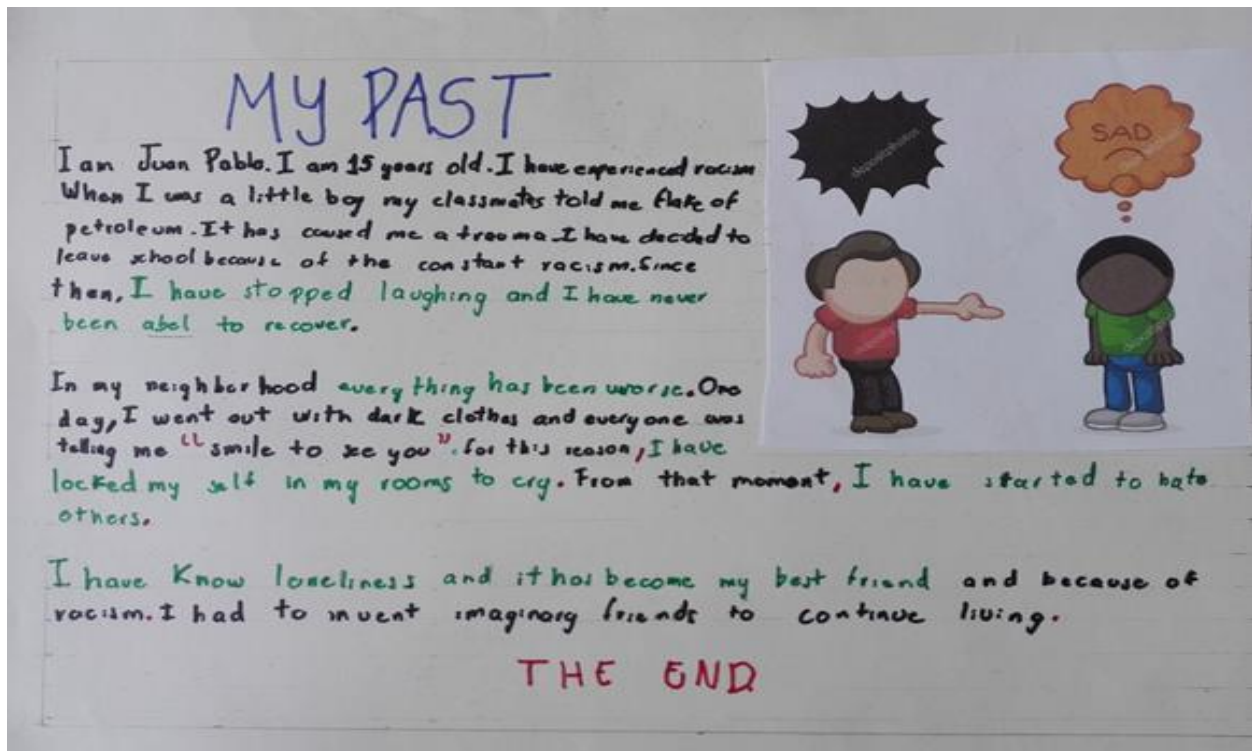 MY PAST
I am Juan Pablo. I am 15 years old. I have experienced racism
When I was a little boy my classmates told me flake of
petroleum. It has caused me a trooma. I have decided to
leave school because of the constant racism. Since
then, I have stopped laughing and I have never
been abel to recover.
In my neighborhood everything has been worse. One
day, I went out with dark clothes and everyone was
telling me “smile to see you”. for this reason, I have
locked my self in my rooms to cry. From that moment, I have started to hate
others.
I have Know loneliness and it has become my best friend and because of
racism. I had to invent imaginary friends to continue living.
THE END
depositphotos
SAD
depositphotos